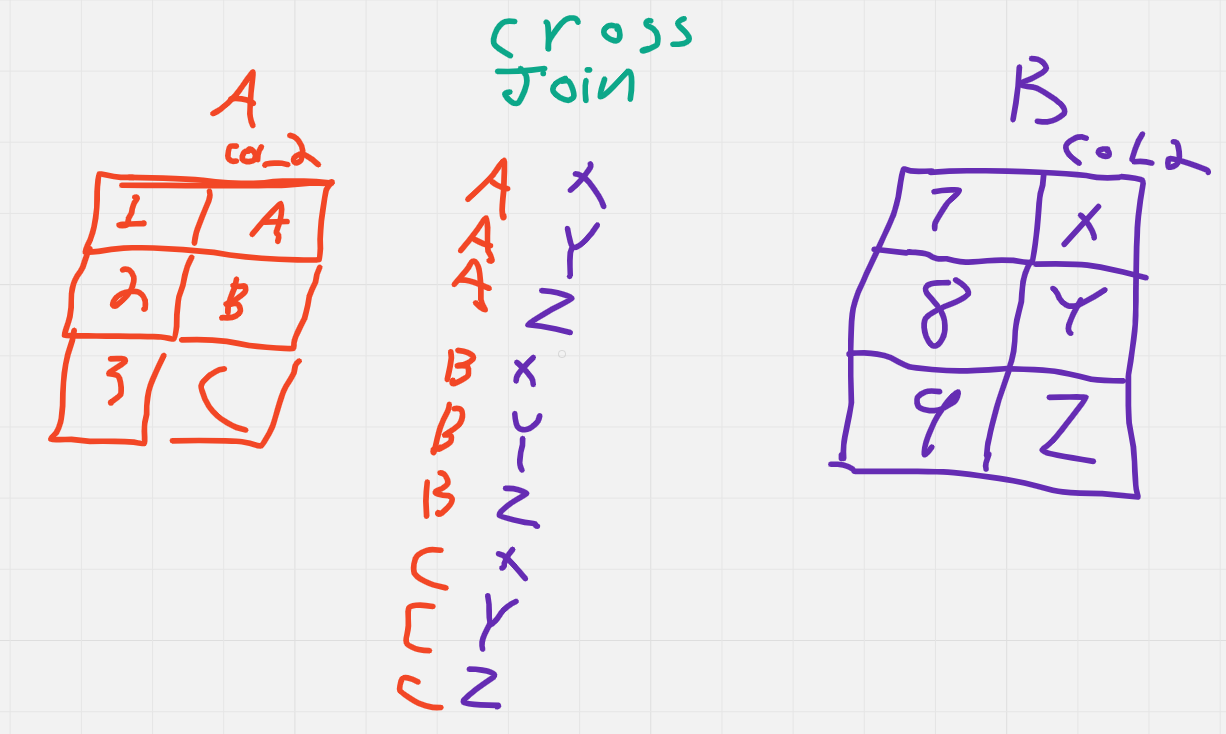 Cross
Join
A
col2
1 A
2 B
3 C
A X
A Y
A Z
B X
B Y
B Z
C X
C Y
C Z
B
Col2
7 X
8 Y
9 Z